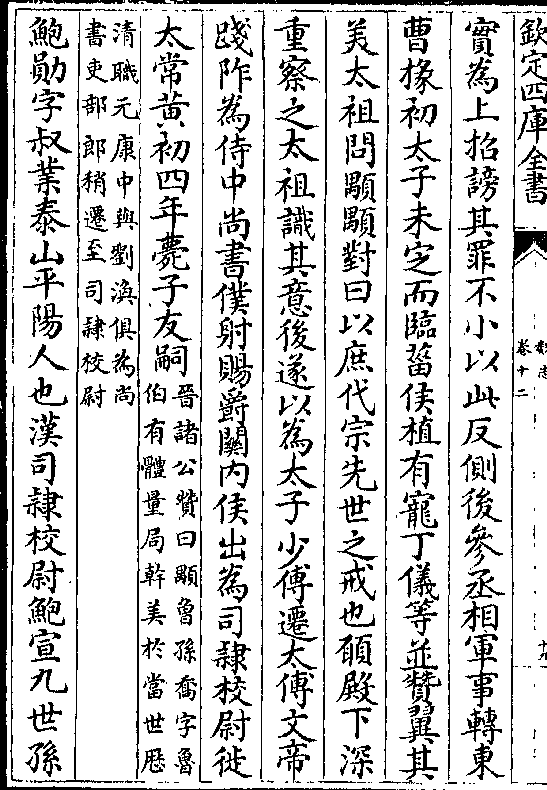 欽定四庫全書
魏志
卷十二
實為上招謗其罪不小以此反側後參丞相軍事轉東
曹掾初太子未定而臨菑侯植有寵丁儀等並贊翼其
美太祖問顒顒對曰以庶代宗先世之戒也願殿下深
重察之太祖識其意後遂以為太子少傅遷太傅文帝
踐阼為侍中尚書僕射賜爵關內侯出為司隸校尉徙
太常黃初四年薨子友嗣
晉諸公贊曰顒曾孫喬字曾
伯有體量局幹美於當世歷
清職元康中與劉渙俱為尚
書吏部郎稍遷至司隸校尉
鮑勛字叔業泰山平陽人也漢司隸校尉鮑宣九世孫